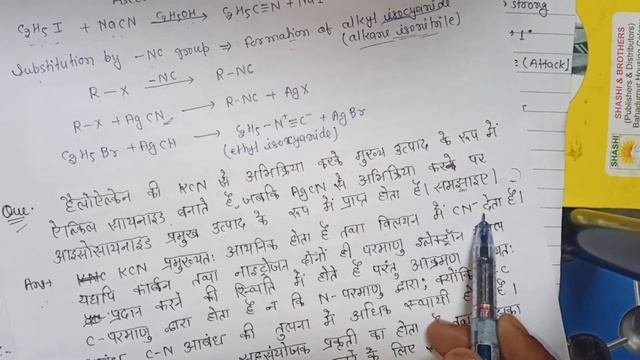 C₂H₅I + NaCN —C₂H₅OH→ C₂H₅C≡N + NaI
Substitution by -NC group ⇒ Formation of alkyl isocyanide
(alkane isonitrile)
R-X —-NC→ R-NC
R-X + AgCN → R-NC + AgX
C₂H₅Br + AgCN → C₂H₅-N⁺≡C⁻ + AgBr
(ethyl isocyanide)
Que. हैलोऐल्केन की KCN से अभिक्रिया करके मुख्य उत्पाद के रूप में
ऐल्किल सायनाइड बनाते हैं, जबकि AgCN से अभिक्रिया करके पर
आइसोसायनाइड प्रमुख उत्पाद के रूप में प्राप्त होता है। समझाइए।
Ans→ KCN प्रमुख्यतः आयनिक होता है तथा विलयन में CN⁻ देता है।
यद्यपि कार्बन तथा नाइट्रोजन दोनों ही परमाणु इलेक्ट्रॉन
प्रदान करने की स्थिति में होते हैं परंतु आक्रमण
C-परमाणु द्वारा होता है न कि N-परमाणु द्वारा; क्योंकि C
C-N आबंध की तुलना में अधिक स्थायी है।
प्रकृती का होता है
के लिए
strong
1°
(Attack)
SHASHI & BROTHERS
(Publishers & Distributors)
SHASHI